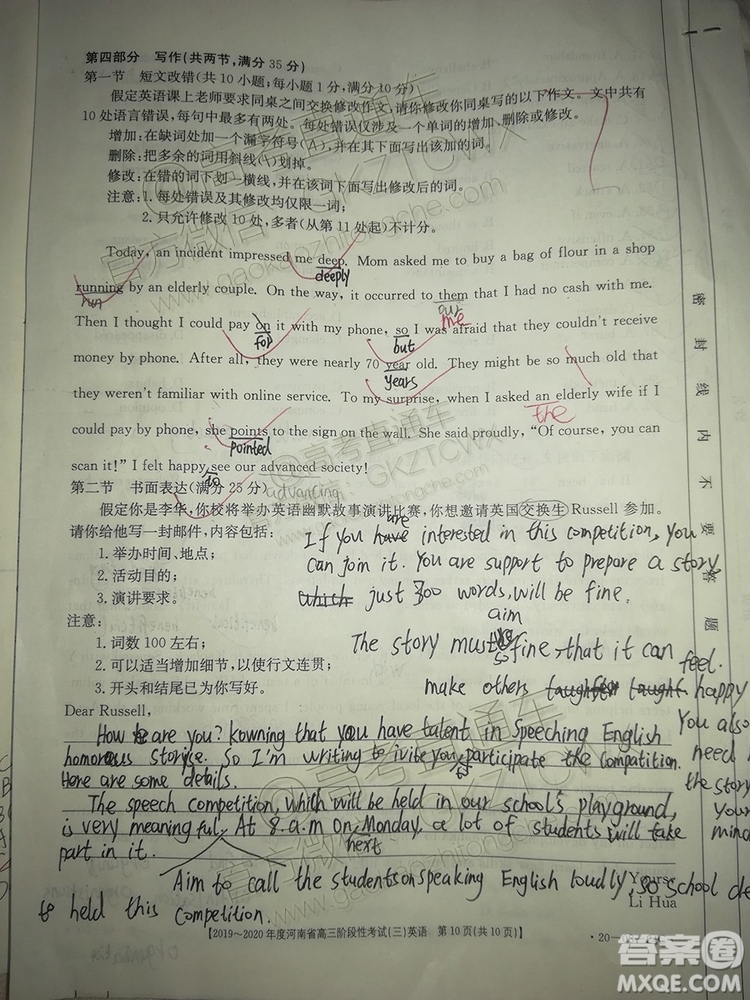 第四部分 写作(共两节,满分 35 分)
第一节 短文改错(共 10 小题;每小题 1 分,满分 10 分)
假定英语课上老师要求同桌之间交换修改作文,请你修改你同桌写的以下作文。文中共有
10 处语言错误,每句中最多有两处。每处错误仅涉及一个单词的增加、删除或修改。
增加:在缺词处加一个漏字符号(∧),并在其下面写出该加的词。
删除:把多余的词用斜线(\)划掉。
修改:在错的词下划一横线,并在该词下面写出修改后的词。
注意:1. 每处错误及其修改均仅限一词;
2. 只允许修改 10 处,多者(从第 11 处起)不计分。
Today, an incident impressed me deep. Mom asked me to buy a bag of flour in a shop
deeply
running by an elderly couple. On the way, it occurred to them that I had no cash with me.
run
our
me
Then I thought I could pay on it with my phone, so I was afraid that they couldn't receive
for
but
money by phone. After all, they were nearly 70 year old. They might be so much old that
years
they weren't familiar with online service. To my surprise, when I asked an elderly wife if I
the
could pay by phone, she points to the sign on the wall. She said proudly, "Of course, you can
pointed
scan it!" I felt happy see our advanced society!
to
advancing
第二节 书面表达(满分 25 分)
假定你是李华,你校将举办英语幽默故事演讲比赛,你想邀请英国交换生 Russell 参加。
请你给他写一封邮件,内容包括:
1. 举办时间、地点;
2. 活动目的;
3. 演讲要求。
注意:
1. 词数 100 左右;
2. 可以适当增加细节,以使行文连贯;
3. 开头和结尾已为你写好。
are
If you have interested in this competition, you
can join it. You are support to prepare a story
which just 300 words, will be fine.
aim
The story must
so fine, that it can feel.
make others happy
Dear Russell,
How are you? kowning that you have talent in Speeching English
homorous Storise. So I'm writing to ivite you participate the compatition.
to
Here are some details.
You also
need
the story
your
mind
The speech competition, which will be held in our school's playground,
is very meaningful. At 8.a.m on Monday, a lot of students will take
next
part in it.
Aim to call the students on speaking English loudly, so school
to held this competition.
Yours,
Li Hua
【2019~2020 年度河南省高三阶段性考试(三)英语 第 10 页(共 10 页)】
20
密封线内不要答题
官方微信
@高考直通车
GKZTCWX
www.gaokaozhitongche.com
答案圈
MXQE.COM